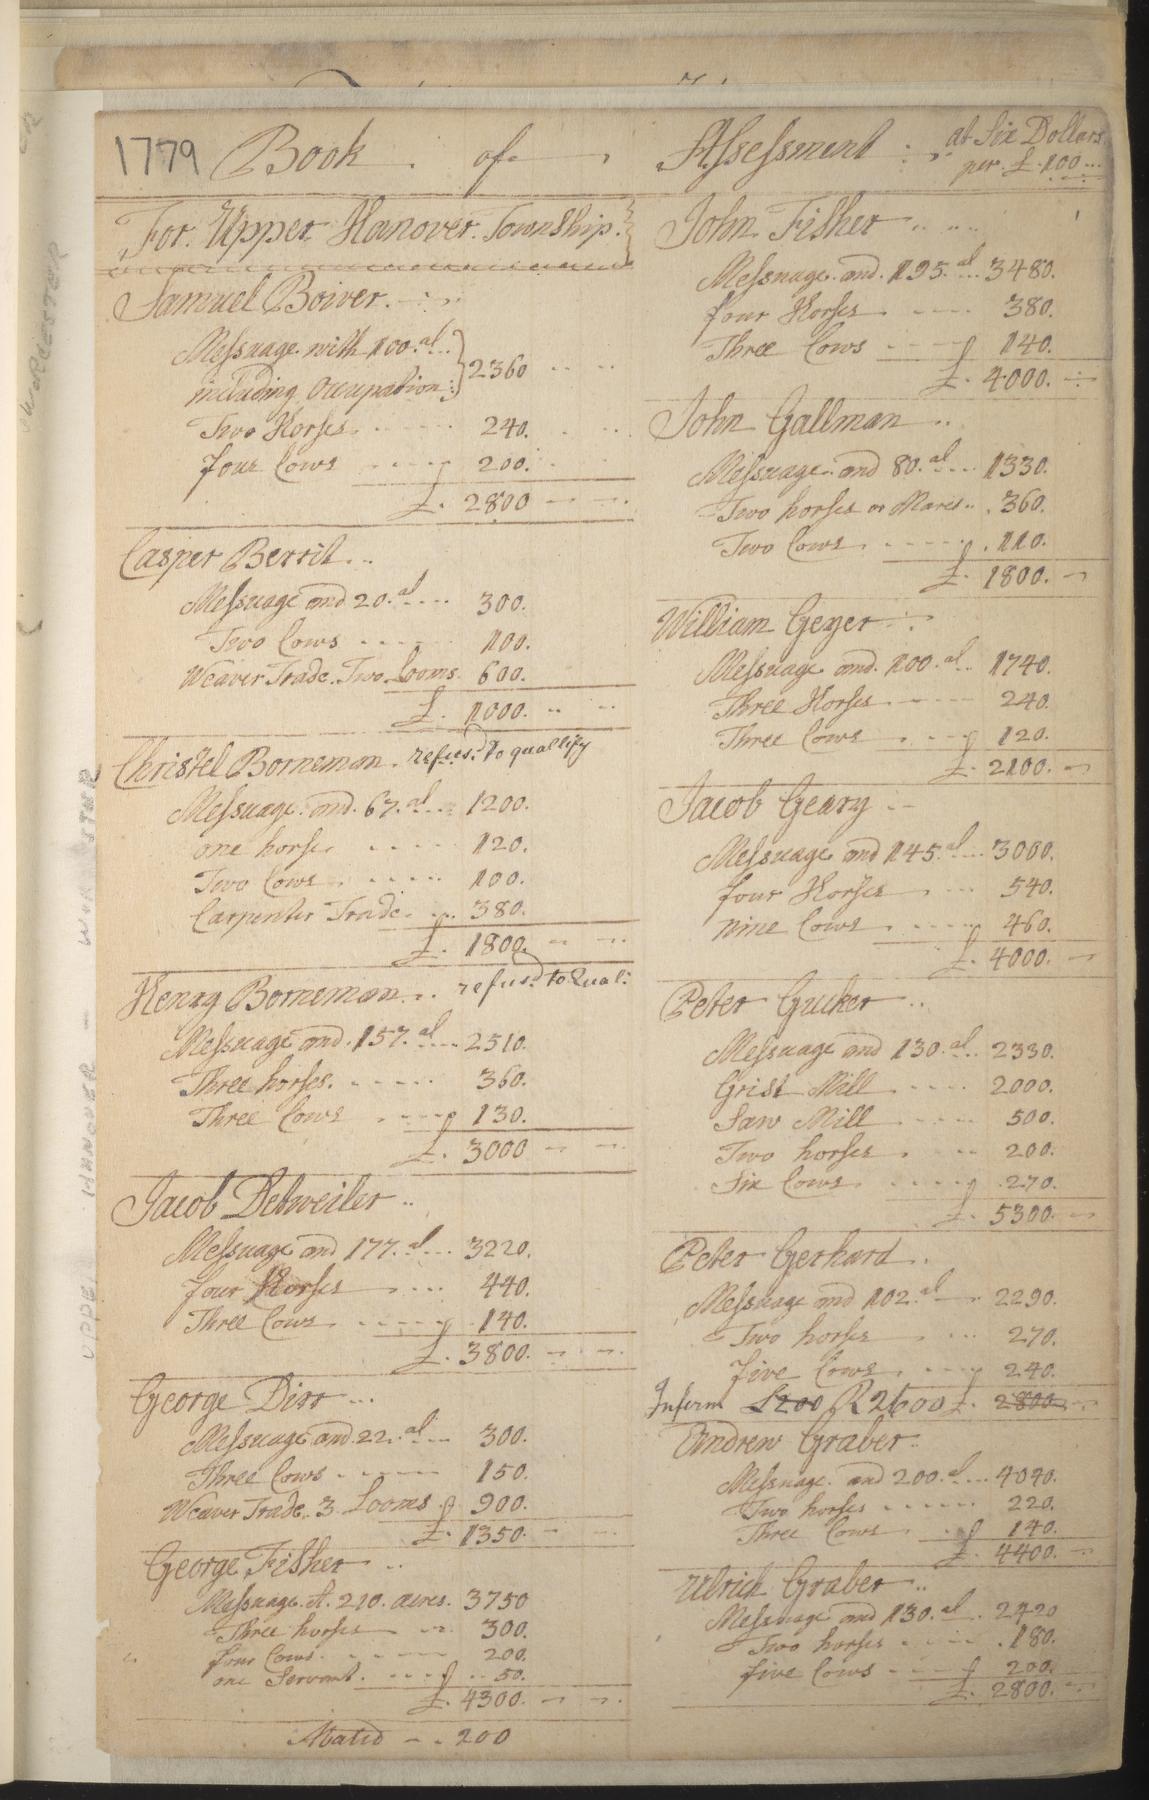 1779 Book of Assessment at Six Dollars
per £ 100
For Upper Hanover Township
Samuel Boiver
Messuage with 100 al
including Occupation 2360
Two Horses 240.
four Cows 200.
£. 2800
Casper Berrit
Messuage and 20. al 300.
Two Cows 100.
Weaver Trade Two Looms 600.
£. 1000.
Christel Borneman. refus'd to quallify
Messuage and 67. al 1200.
one horse 120.
Two Cows 100.
Carpenter Trade 380.
£. 1800.
Henry Borneman refus'd to Qual:
Messuage and 157. al 2510.
Three horses 360.
Three Cows 130.
£. 3000
Jacob Detweiler
Messuage and 177. al 3220.
four Horses 440.
Three Cows 140.
£. 3800.
George Dirr
Messuage and 22. al 300.
Three Cows 150.
Weaver Trade 3 Looms 900.
£. 1350.
George Fisher
Messuage & 210. acres. 3750
Three horses 300.
four Cows 200.
one Servant 50.
£. 4300.
Abated 200
John Fisher
Messuage and 195. al 3480.
four Horses 380.
Three Cows 140.
£. 4000.
John Gallman
Messuage and 80. al 1330.
Two horses or Mares 360.
Two Cows 110.
£. 1800.
William Geyer
Messuage and 100. al 1740.
Three Horses 240.
Three Cows 120.
£. 2100.
Jacob Geary
Messuage and 145. al 3000.
four Horses 540.
nine Cows 460.
£. 4000.
Peter Gucker
Messuage and 130. al 2330.
Grist Mill 2000.
Saw Mill 500.
Two horses 200.
Six Cows 270.
£. 5300.
Peter Gerhard
Messuage and 102. al 2290.
Two horses 270.
five Cows 240.
Infirm £200 R 2600 £. 2800.
Andrew Graber
Messuage and 200. al 4040.
Two horses 220.
Three Cows 140.
£. 4400.
Ulrich Graber
Messuage and 130. al 2420
Two horses 180.
five Cows 200.
£. 2800.